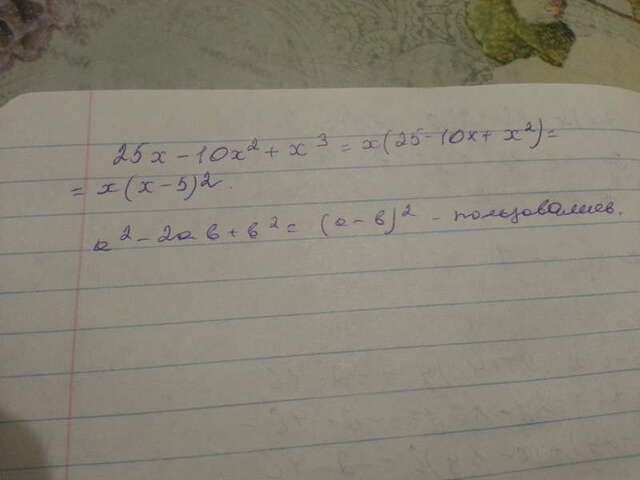 25x - 10x² + x³ = x(25 - 10x + x²) =
= x(x - 5)2.
a² - 2ab + b² = (a - b)² - пользовались.